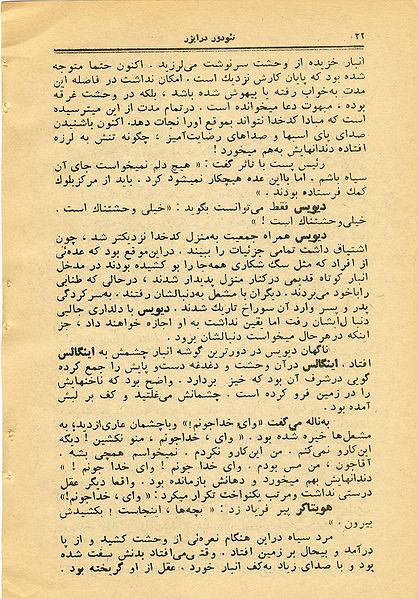 ۲۲
تئودور درایزر
انبار خزیده از وحشت سرنوشت می‌لرزید . اکنون حتما متوجه
شده بود که پایان کارش نزدیك است . امکان نداشت در فاصله این
مدت به‌خواب رفته یا بیهوش شده باشد ، بلکه در وحشت غرقه
بوده ، مبهوت دعا میخوانده است . درتمام مدت از این میترسیده
است که مبادا کدخدا نتواند بموقع اورا نجات دهد. اکنون باشنیدن
صدای پای اسبها و صداهای رضایت‌آمیز ، چگونه تنش به لرزه
افتاده دندانهایش به‌هم میخورد !
رئیس پست با تاثر گفت : « هیچ دلم نمیخواست جای آن
سیاه باشم . اما بااین عده هیچکار نمیشود کرد . باید از مرکزبلوك
کمك فرستاده بودند . »
دیویس فقط می‌توانست بگوید : «خیلی وحشتناك است .
خیلی‌وحشتناك است ! »
دیویس همراه جمعیت به‌منزل کدخدا نزدیکتر شد ، چون
اشتیاق داشت تمامی جزئیات را ببیند . دراین‌موقع بود که عده‌ئی
از افراد که مثل سگ شکاری همه‌جارا بو کشیده بودند در مدخل
انبار کوتاه قدیمی درکنار منزل پدیدار شدند ، درحالی که طنابی
راباخود می‌بردند. دیگران با مشعل به‌دنبالشان رفتند . به‌سرکردگی
پدر و پسر وارد آن سوراخ تاریك شدند. دیویس با دلداری جالبی
دنبالشان رفت اما یقین نداشت به او اجازه خواهند داد ، جز
اینکه درهرحال میخواست دنبالشان برود .
ناگهان دیویس در دورترین گوشه انبار چشمش به اینگالس
افتاد . اینگالس درآن وحشت و دغدغه دست‌و پایش را جمع کرده
گویی درشرف آن بود که خیز بردارد . واضح بود که ناخنهایش
را در زمین فرو کرده است . چشمانش می‌غلتید و کف بر لبش
آمده بود .
به‌ناله می‌گفت «وای، خداجونم!» وباچشمان عاری‌ازدید؛ به
مشعل‌ها خیره شده بود . « وای ، خداجونم ، منو نکشین ! دیگه
این‌کارو نمی‌کنم . من این‌کارو نکردم . نمیخواسم همچی بشه .
آقاجون ، من مس بودم . وای خدا جونم ! وای خدا جونم ! »
دندانهایش بهم میخورد و دهانش بازمانده بود . واقعا دیگر عقل
درستی نداشت ومرتب یکنواخت تکرار میکرد : « وای ، خداجونم!»
هویتاگر پیر فریاد زد : « بچه‌ها ، اینجاست ! بکشیدش
بیرون . »
مرد سیاه دراین هنگام نعره‌ئی از وحشت کشید و از پا
درآمد و بیحال بر زمین افتاد . وقتی‌می‌افتاد بدنش سفت شده
بود و با صدای زیاد به‌کف انبار خورد . عقل از او گریخته بود .